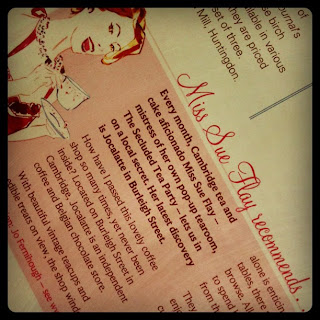 ournal's
se birch
ailable in various
They are priced
set of three.
Mill, Huntingdon.
Miss Sue Flay recommends...
Every month, Cambridge tea and
cake aficionado Miss Sue Flay –
mistress of her own pop-up tearoom,
The Secluded Tea Party – lets us in
on a local secret. Her latest discovery
is Jocalatte in Burleigh Street.
How have I passed this lovely coffee
shop so many times, yet never been
inside? Located on Burleigh Street in
Cambridge, Jocalatte is an independent
coffee and Belgian chocolate store.
With beautiful vintage teacups and
edible treats on view, the shop wind
Jo Fernihough – see w
alone is enticin
tables, there
browse. All
to spend
from th
enjoy